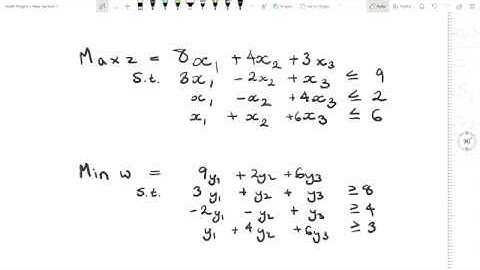 Max z = 8x₁ + 4x₂ + 3x₃
s.t. 3x₁ - 2x₂ + x₃ ≤ 9
x₁ - x₂ + 4x₃ ≤ 2
x₁ + x₂ + 6x₃ ≤ 6
90°
Min w = 9y₁ + 2y₂ + 6y₃
s.t. 3y₁ + y₂ + y₃ ≥ 8
-2y₁ - y₂ + y₃ ≥ 4
y₁ + 4y₂ + 6y₃ ≥ 3